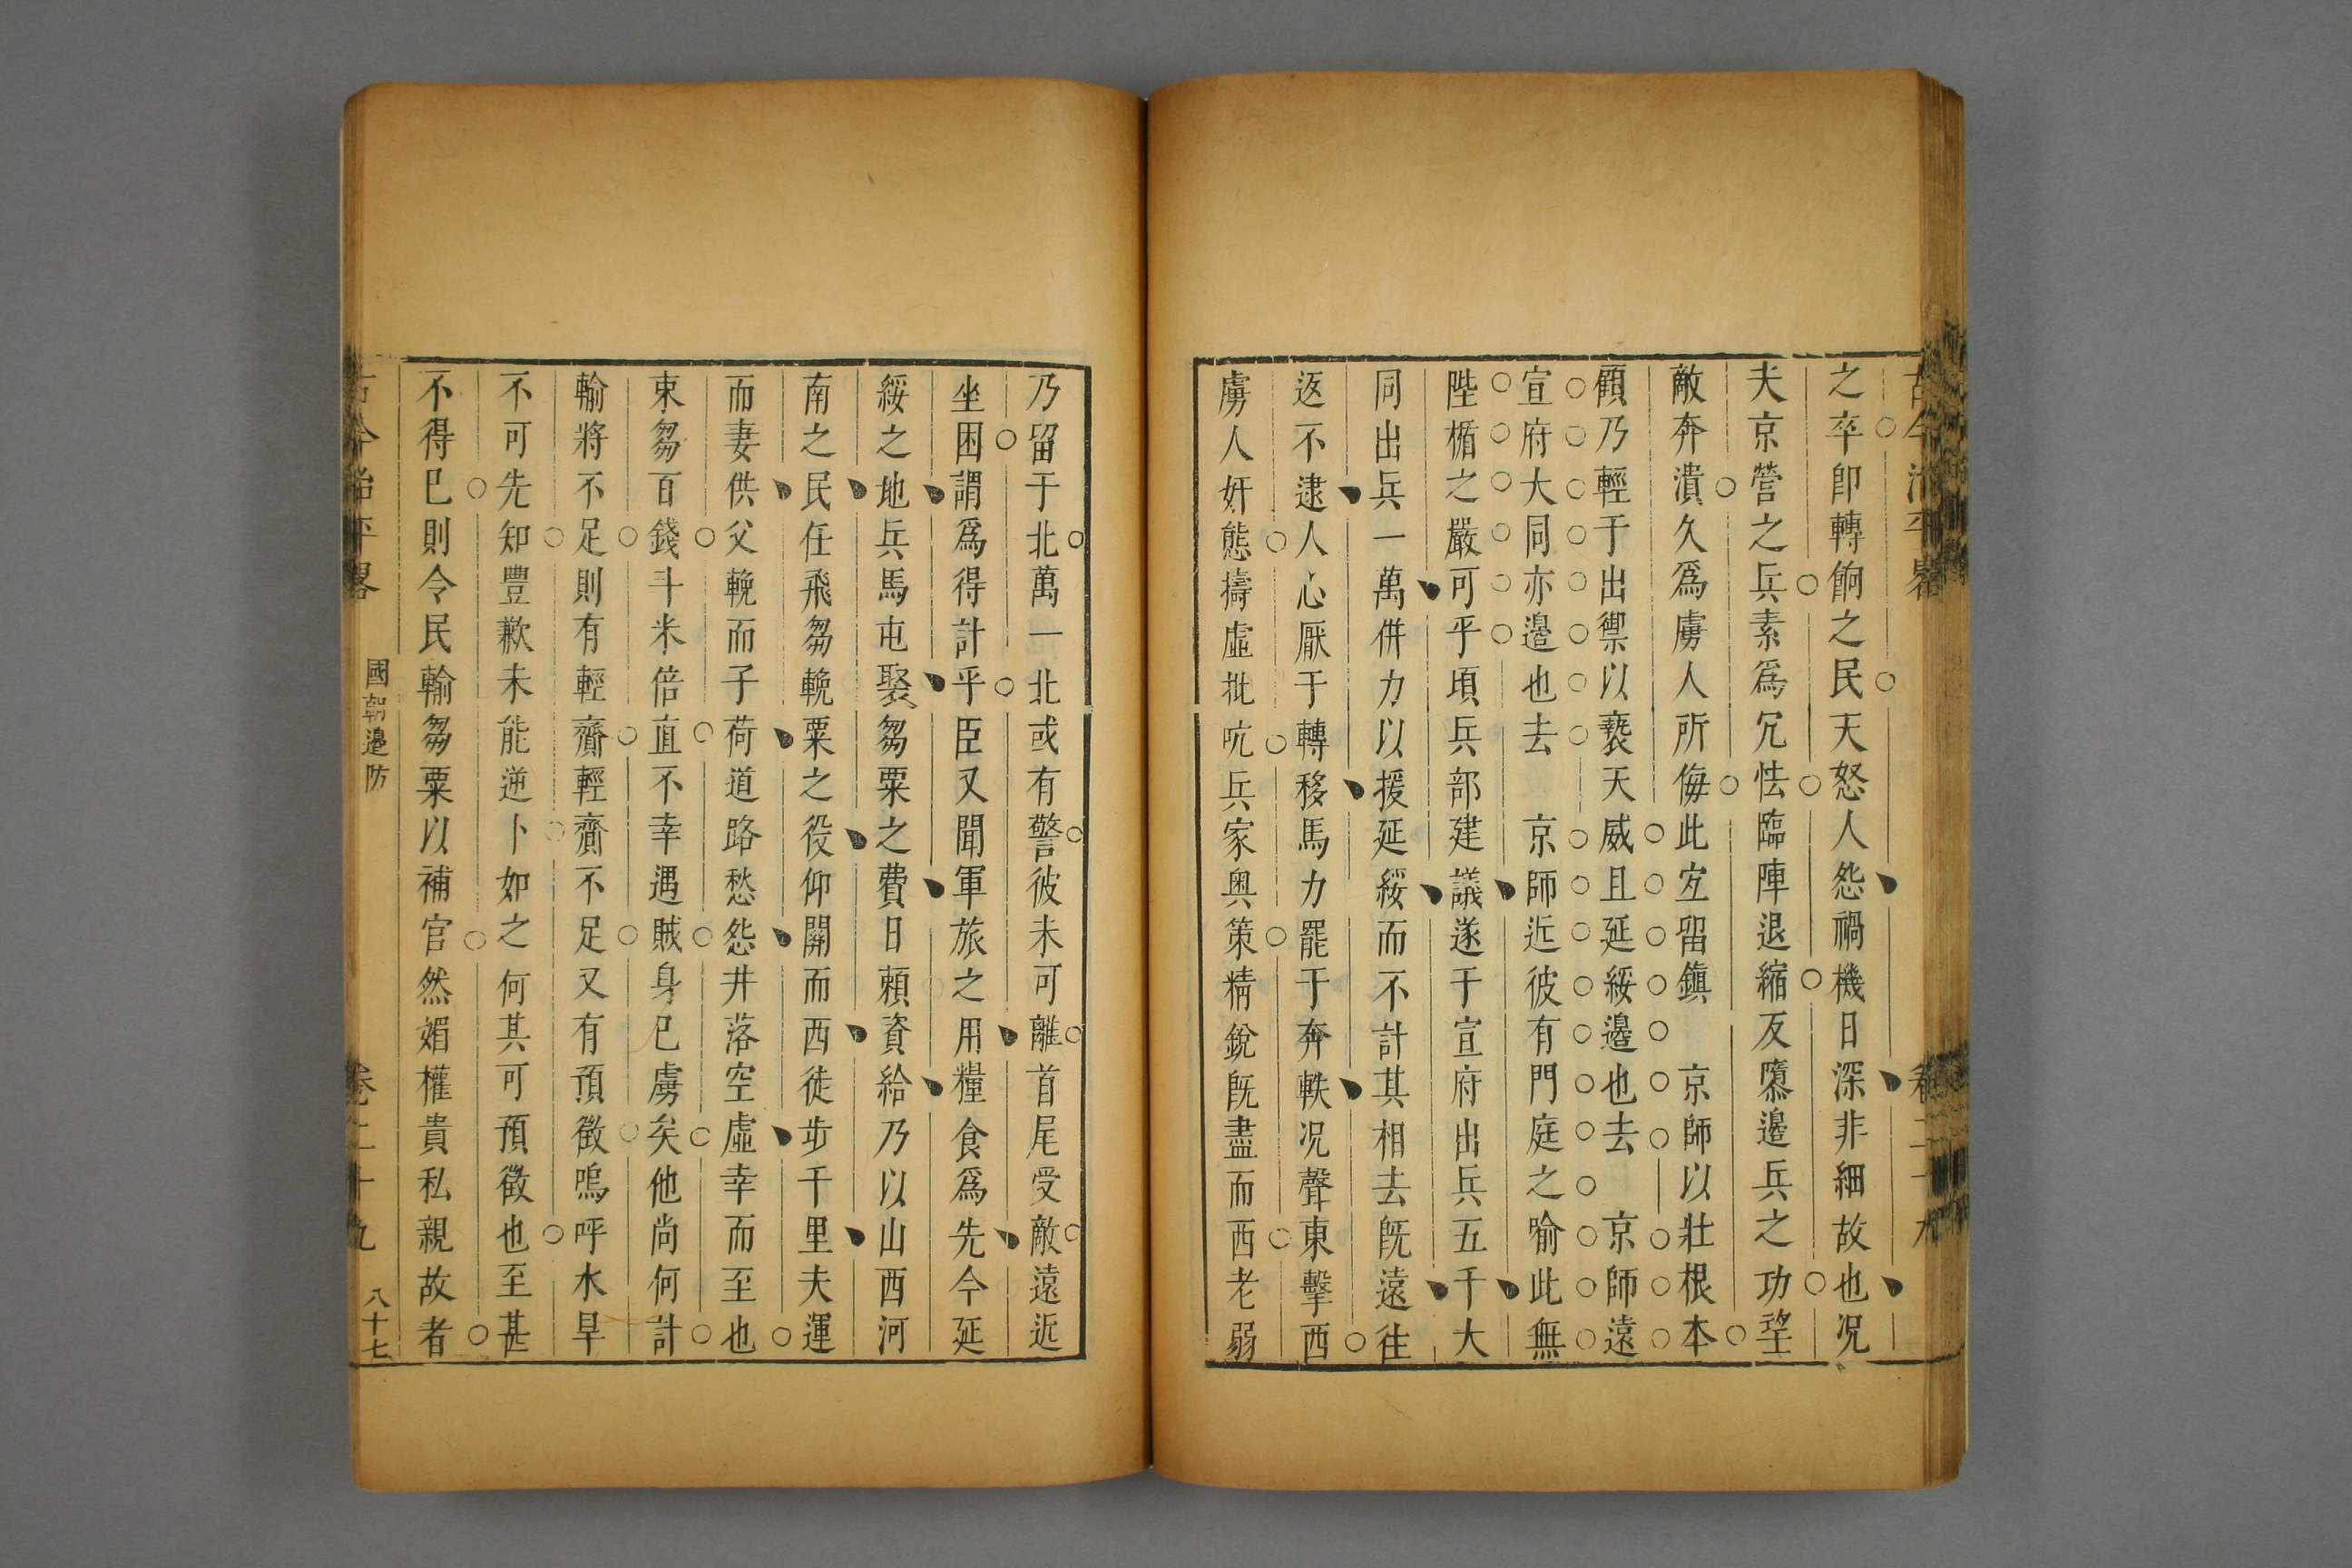 古今治平畧
卷二十九
之卒卽轉餉之民天怒人怨禍機日深非細故也况
夫京營之兵素爲冗怯臨陣退縮反隳邊兵之功望
敵奔潰久爲虜人所侮此宜留鎮 京師以壯根本
顧乃輕于出禦以褻天威且延綏邊也去 京師遠
宣府大同亦邊也去 京師近彼有門庭之喻此無
陛楯之嚴可乎頃兵部建議遂于宣府出兵五千大
同出兵一萬併力以援延綏而不計其相去旣遠往
返不逮人心厭于轉移馬力罷于奔軼况聲東擊西
虜人奸態擣虛批吭兵家奥策精銳旣盡而西老弱
乃留于北萬一北或有警彼未可離首尾受敵遠近
坐困謂爲得計乎臣又聞軍旅之用糧食爲先今延
綏之地兵馬屯聚芻粟之費日頼資給乃以山西河
南之民任飛芻輓粟之役仰關而西徒步千里夫運
而妻供父輓而子荷道路愁怨井落空虛幸而至也
束芻百錢斗米倍直不幸遇賊身已虜矣他尚何計
輸將不足則有輕齎輕齎不足又有預徵嗚呼水旱
不可先知豐歉未能逆卜如之何其可預徵也至甚
不得已則令民輸芻粟以補官然媚權貴私親故者
古今治平畧
國朝邊防
卷二十九
八十七